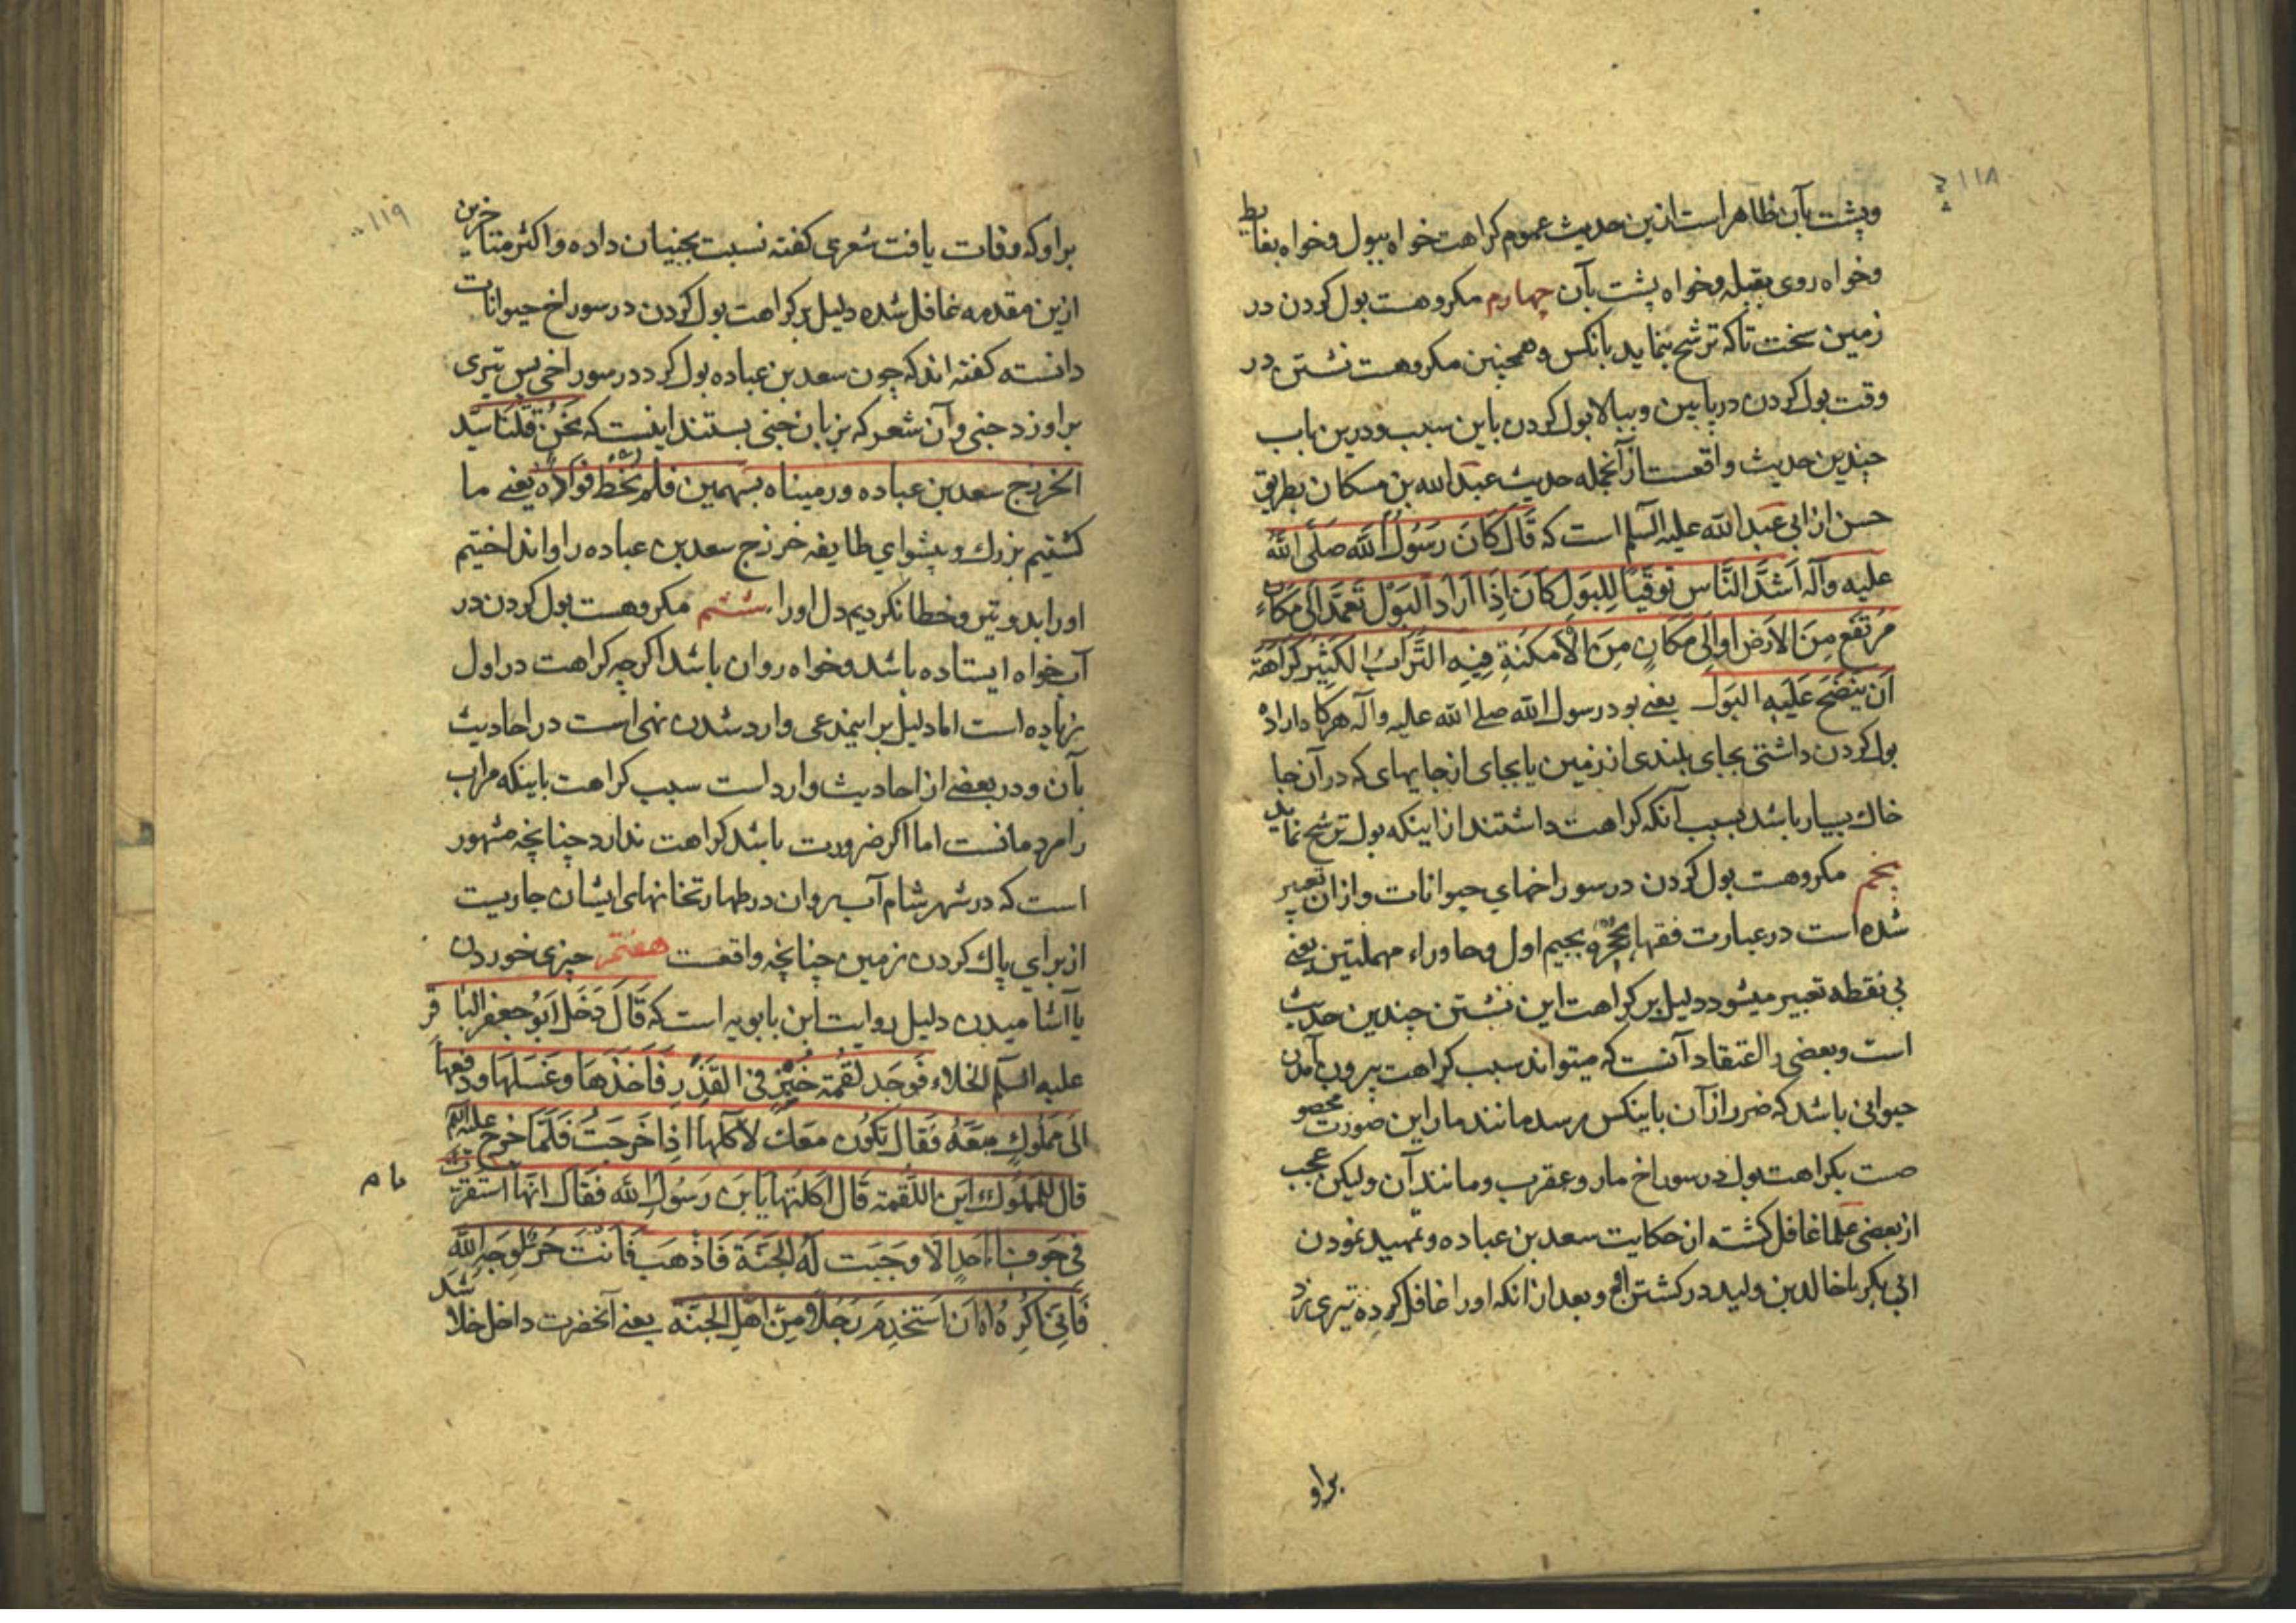 ۱۱۸
وپشت بآن ظاهر است ازین حدیث عموم کراهت خواه ببول وخواه بغایط
وخواه روی بقبله وخواه پشت بآن چهارم مکروهست بول کردن در
زمین سخت تاکه ترشح ننماید بانکس وهمچنین مکروهست نشستن در
وقت بول کردن در پایین وببالا بول کردن باین سبب ودرین باب
چندین حدیث واقعست ازآنجمله حدیث عبدالله بن مسکان بطریق
حسن از ابی عبدالله علیه السلم است که قَالَ کَانَ رَسُولُ اللَّه صَلَّی اللَّهُ
علیه وآله اَشَدَّ النَّاسِ تَوَقِّیًا لِلبَولِ کَانَ اِذَا اَرَادَ البَوْلَ تَعَمَّدَ اِلی مَکَانٍ
مُرتَفِعٍ مِنَ الاَرضِ اَو اِلی مَکَانٍ مِنَ الاَمکَنَةِ فِیهِ التُّرَابُ الکَثِیرُ کَرَاهَةَ
اَن یَنضَحَ عَلَیهِ البَولُ یعنی بود رسول الله صلی الله علیه وآله هرکاه اراده
بول کردن داشتی بجای بلندی از زمین یا بجای از جایهای که در آن جا
خاك بسیار باشد بسبب آنکه کراهت داشتند از اینکه بول ترشح نماید
پنجم مکروهست بول کردن در سوراخهای حیوانات وازان تعبیر
شده است در عبارت فقها بجُحْرَه بجیم اول وحا وراء مهملتین یعنی
بی نقطه تعبیر میشود ودلیل بر کراهت این نشستن چندین حدیث
است وبعضی را اعتقاد آنست که میتواند سبب کراهت بیرون آمدن
حیوانی باشد که ضرر از آن باینکس رسد مانند مار این صورت مخصو
صست بکراهت بول در سوراخ مار وعقرب ومانند آن ولیکن عجب
از بعضی علما غافل کشته از حکایت سعد بن عباده وتمهید نمودن
ابی بکر با خالد بن ولید در کشتن او وبعد از انکه اورا غافل کرده تیری زد
براو
۱۱۹
براو که وفات یافت شعری کفته نسبت بجنیان داده واکثر متاخرین
ازین مقدمه غافل شده دلیل بر کراهت بول کردن در سوراخ حیوانات
دانسته کفته اند که چون سعد بن عباده بول کرد در سوراخی پس تیری
براو زد جنی وآن شعر که بزبان جنی بستند اینست که نَحنُ قَتَلنَا سیّد
الخزرج سعد بن عباده ورمیناه بسهمین فلم نُخْطِ فواده یعنی ما
کشتیم بزرك وپیشوای طایفه خزرج سعد بن عباده را وانداختیم
اورا بدو تیر وخطا نکردیم دل اورا ششم مکروهست بول کردن در
آب خواه ایستاده باشد وخواه روان باشد اکرچه کراهت در اول
زیاده است اما دلیل بر اینمدعی وارد شدن نهی است در احادیث
بآن ودر بعضی از احادیث وارد است سبب کراهت باینکه مراب
را مردمانست اما اکر ضرورت باشد کراهت ندارد چنانچه مشهور
است که در شهر شام آب روان در طهارتخانهای ایشان جاریست
از برای پاك کردن زمین چنانچه واقعست هفتم چیزی خوردن
یا آشامیدن دلیل روایت ابن بابویه است که قَالَ دَخَلَ اَبُو جعفر البَاقر
علیه السلم الخلاء فَوَجَد لُقمَة خُبْزٍ فی القَذَرِ فَاَخَذَهَا وَغَسَلَهَا ودفعها
اِلی مَملُوكٍ مَعَهُ فَقَال تَکُون مَعَكَ لِآکُلَهَا اِذَا خَرَجتُ فَلَمَّا خرج علیه السلم
قال للمملوك این اللُّقمَة قَال اَکَلتُهَا یَا بن رَسُول الله فقَال اِنَّهَا استَقَرَّت
فی جَوف اَحَدٍ اِلَّا وَجَبَت لَهُ الجَنَّة فَاذْهَب فَاَنْتَ حُرٌّ لِوَجهِ اللَّهِ
فَاِنّی اَکرَهُ اَن اَستَخدِمَ رَجُلًا مِن اَهلِ الجنّة یعنی آنحضرت داخل خلا شد